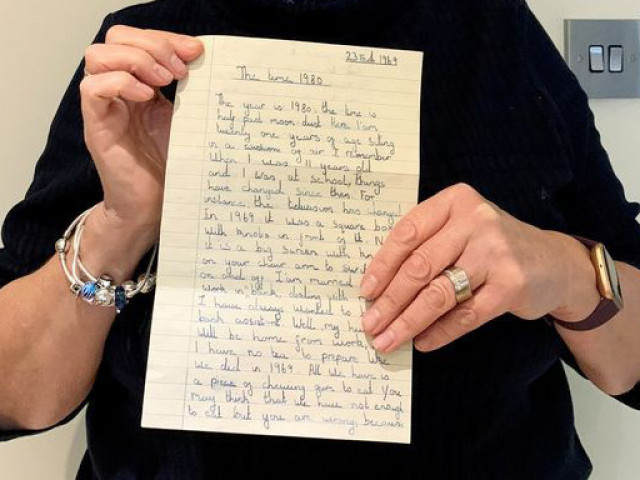 23rd Feb 1969
The time 1980
The year is 1980. the time is
half past moon-dust. Here I'am
twenty one years of age siting
in a cushione of air I remember
When I was 11 years old
and I was at school, things
have changed since then. For
instance, the television has changed
In 1969 it was a square box
with knobs in front of it. N
it is a big screen with kn
on your chair arm to swit
on and off. I'am married
work in bank dealing with
I have always wanted to
bank assistant. Well, my hu
Will be home from work,
I have no tea to prepare like
We did in 1969. All We have is
a piece of chewing gum to eat You
may think that we have not enough
to eat but you are wrong, because